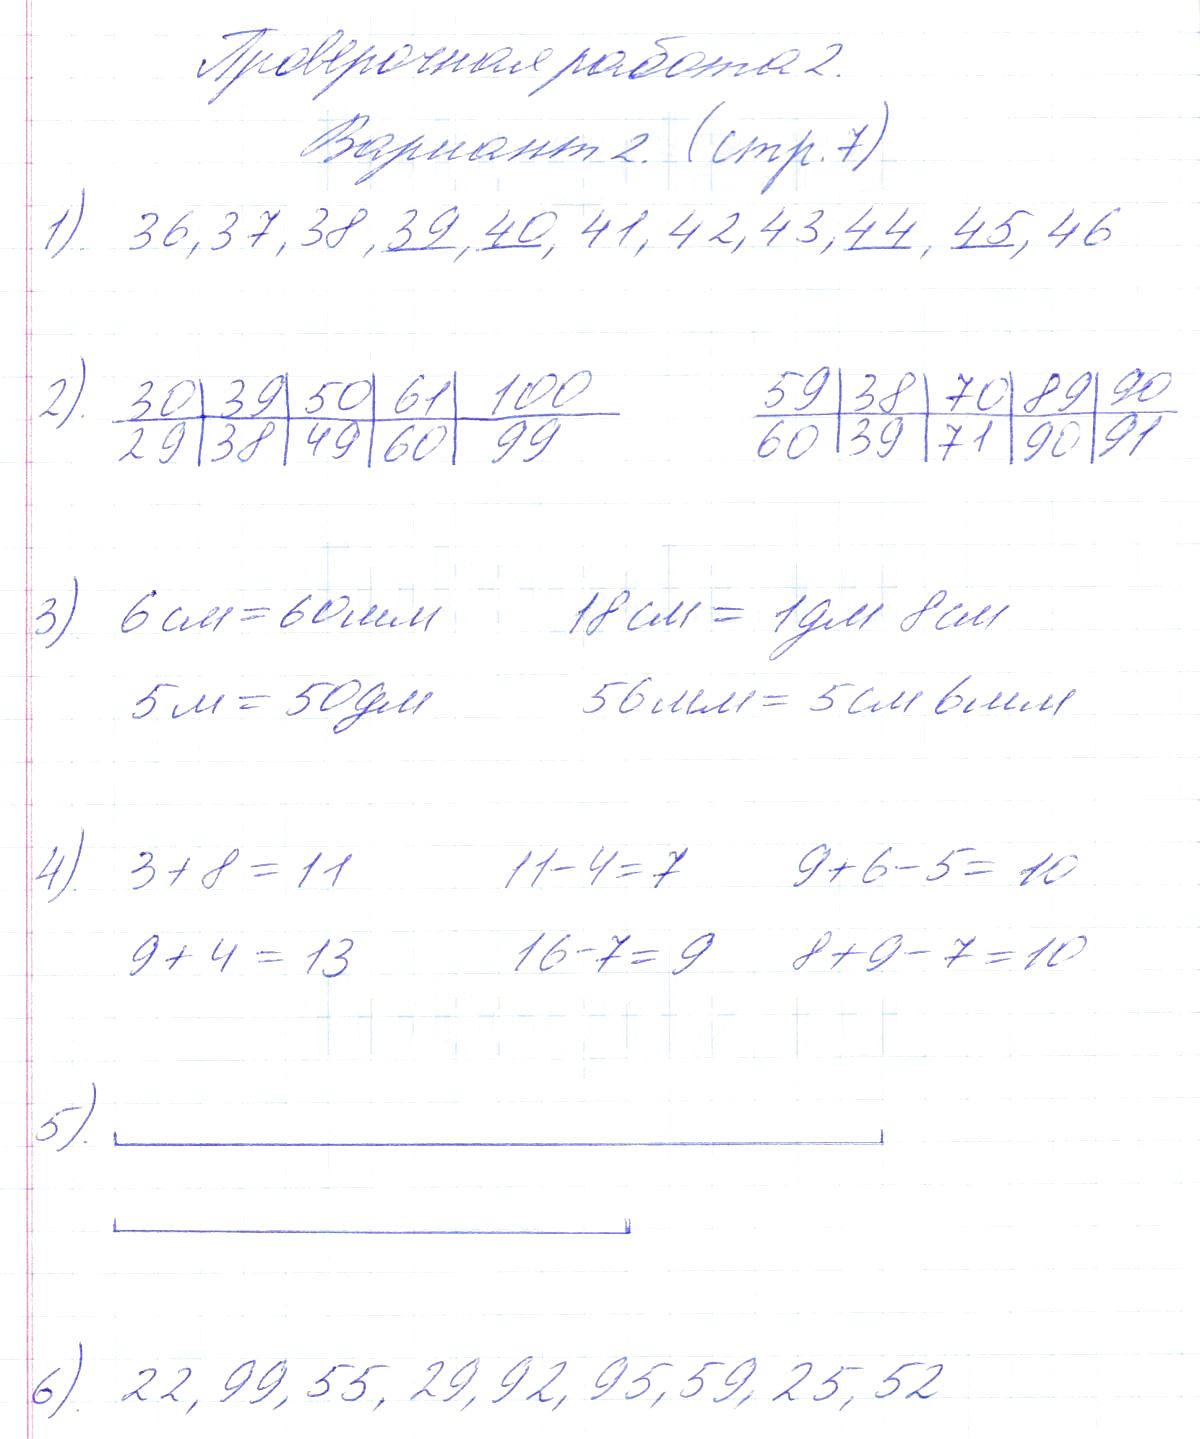 Проверочная работа 2.
Вариант 2. (стр. 7)
1). 36, 37, 38, 39, 40, 41, 42, 43, 44, 45, 46
2). 30 | 39 | 50 | 61 | 100 59 | 38 | 70 | 89 | 90
29 | 38 | 49 | 60 | 99 60 | 39 | 71 | 90 | 91
3) 6 см = 60 мм 18 см = 1 дм 8 см
5 м = 50 дм 56 мм = 5 см 6 мм
4). 3 + 8 = 11 11 - 4 = 7 9 + 6 - 5 = 10
9 + 4 = 13 16 - 7 = 9 8 + 9 - 7 = 10
5).
6). 22, 99, 55, 29, 92, 95, 59, 25, 52